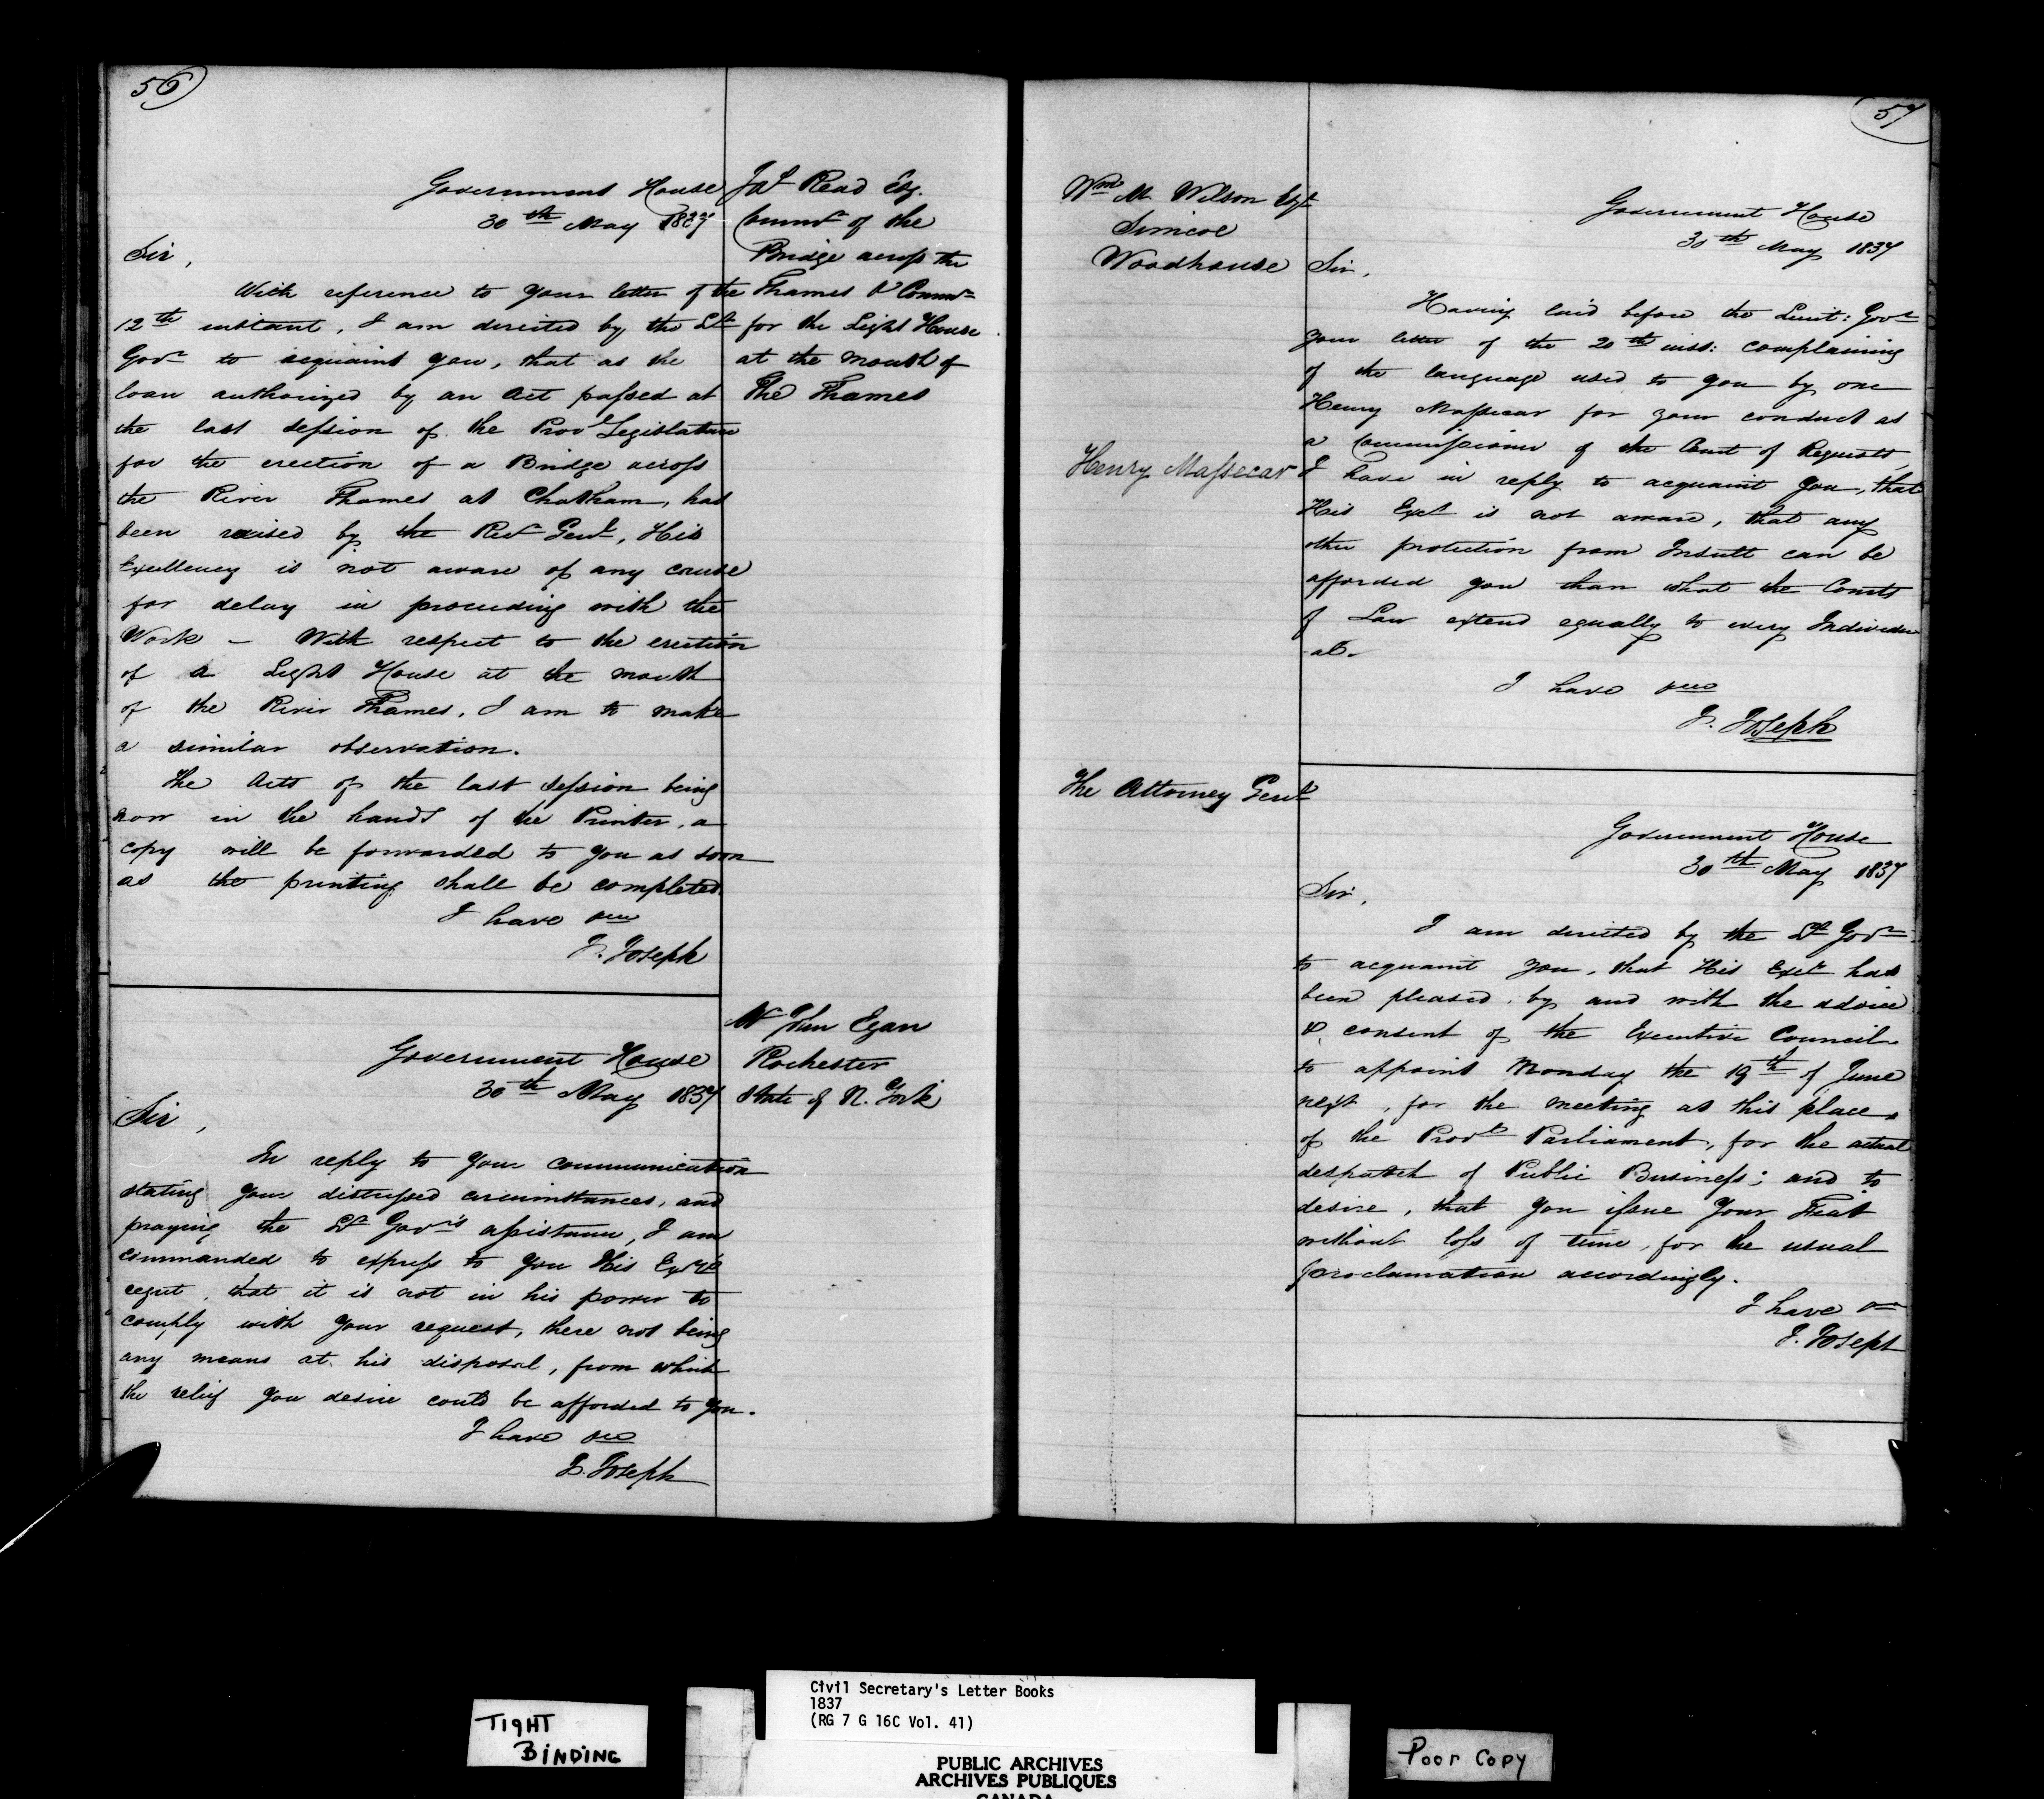 56
Government House
30th May 1837
Jas Read Esq.
Commr of the
Bridge across the
Thames & Commr
for the Light House
at the mouth of
the Thames
Sir,
With reference to your letter of the
12th instant, I am directed by the Lt
Govr to acquaint you, that as the
loan authorized by an Act passed at
the last session of the Provl Legislature
for the erection of a Bridge across
the River Thames at Chatham, has
been raised by the Recr Genl, His
Excellency is not aware of any cause
for delay in proceeding with the
Work – With respect to the erection
of a Light House at the mouth
of the River Thames, I am to make
a similar observation.
The Acts of the last session being
now in the hands of the Printer, a
copy will be forwarded to you as soon
as the printing shall be completed.
I have &ca
J. Joseph
Mr John Egan
Rochester
State of N. York
Government House
30th May 1837
Sir,
In reply to your communication
stating your distressed circumstances, and
praying the Lt Govr's assistance, I am
commanded to express to you His Excys
regret, that it is not in his power to
comply with your request, there not being
any means at his disposal, from which
the relief you desire could be afforded to you.
I have &ca
J. Joseph
57
Wm M Wilson Esqr
Simcoe
Woodhouse
Henry Massecar
Government House
30th May 1837
Sir,
Having laid before the Lieut: Govr
your letter of the 20th inst: complaining
of the language used to you by one
Henry Massecar for your conduct as
a Commissioner of the Court of Requests,
I have in reply to acquaint you, that
His Excy is not aware, that any
other protection from Insult can be
afforded you than what the Courts
of Law extend equally to every Individu
-al.
I have &ca
J. Joseph
The Attorney Genl
Government House
30th May 1837
Sir,
I am directed by the Lt Govr
to acquaint you, that His Excy has
been pleased, by and with the advice
& consent of the Executive Council
to appoint Monday the 19th of June
next, for the meeting at this place
of the Provl Parliament, for the actual
despatch of Public Business; and to
desire, that you issue Your Fiat
without loss of time, for the usual
proclamation accordingly.
I have &ca
J. Joseph
TIGHT
BINDING
Civil Secretary's Letter Books
1837
(RG 7 G 16C Vol. 41)
PUBLIC ARCHIVES
ARCHIVES PUBLIQUES
CANADA
Poor Copy